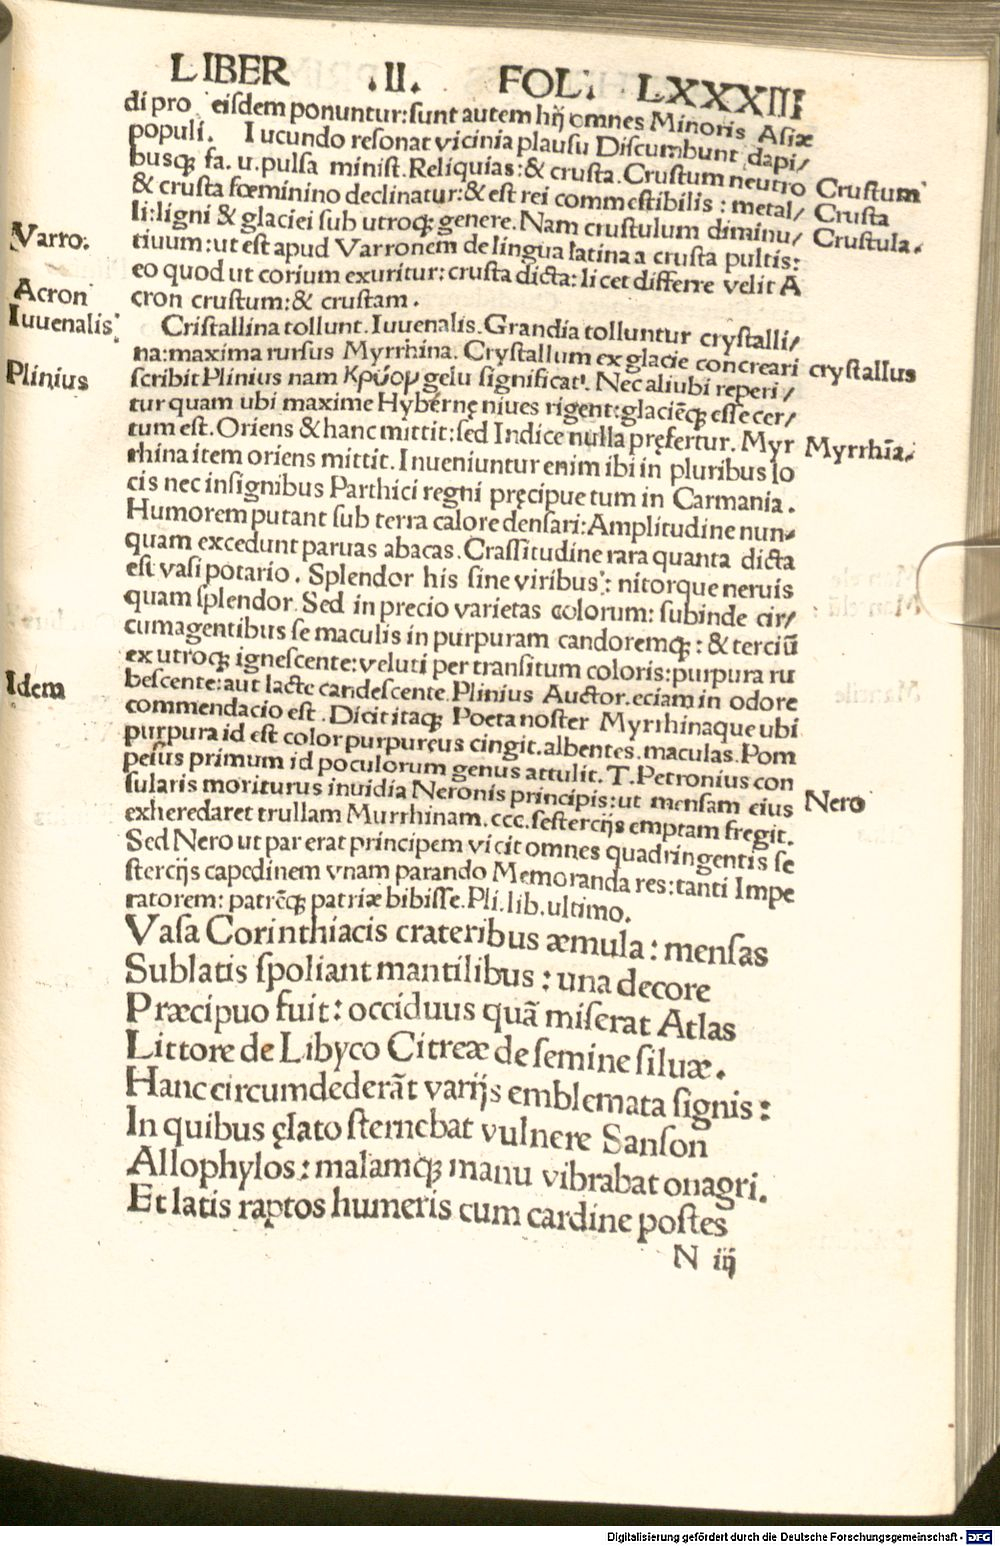 LIBER .II. FOL. LXXXIII
di pro eisdem ponuntur:sunt autem hij omnes Minoris Asiæ
populi. Iucundo resonat vicinia plausu Discumbunt dapi/
busqꝫ fa. u. pulsa minist. Reliquias:& crusta. Crustum neutro
Crustum
& crusta fœminino declinatur:& est rei commestibilis : metal/
Crusta
li:ligni & glaciei sub utroqꝫ genere. Nam crustulum diminu/
Crustula.
Varro.
tiuum:ut est apud Varronem de lingua latina a crusta pultis:
eo quod ut corium exuritur: crusta dicta: licet differre velit A
Acron
cron crustum:& crustam.
Iuuenalis
Cristallina tollunt. Iuuenalis. Grandia tolluntur crystalli/
na:maxima rursus Myrrhina. Crystallum ex glacie concreari
crystallus
Plinius
scribit Plinius nam Κρύομ gelu significat'. Nec aliubi reperi/
tur quam ubi maxime Hybernę niues rigent:glaciēqꝫ esse cer/
tum est. Oriens & hanc mittit:sed Indice nulla pręfertur. Myr
Myrrhīa.
rhina item oriens mittit. Inueniuntur enim ibi in pluribus lo
cis nec insignibus Parthici regni pręcipue tum in Carmania.
Humorem putant sub terra calore densari:Amplitudine nun/
quam excedunt paruas abacas. Crassitudine rara quanta dicta
est vasi potario. Splendor his sine viribus: nitorque neruis
quam splendor. Sed in precio varietas colorum: subinde cir/
cumagentibus se maculis in purpuram candoremqꝫ: & terciū
ex utroqꝫ ignescente:veluti per transitum coloris:purpura ru
Idem
bescente:aut lacte candescente. Plinius Auctor. eciam in odore
commendacio est. Dicit itaqꝫ Poeta noster Myrrhinaque ubi
purpura id est color purpureus cingit. albentes. maculas. Pom
peius primum id poculorum genus attulit. T. Petronius con
sularis moriturus inuidia Neronis principis:ut mensam eius
Nero
exheredaret trullam Murrhinam. ccc. sestercijs emptam fregit.
Sed Nero ut par erat principem vicit omnes quadringentis se
stercijs capedinem vnam parando Memoranda res:tanti Impe
ratorem: patrēqꝫ patriæ bibisse. Pli. lib. ultimo.
Vasa Corinthiacis crateribus æmula : mensas
Sublatis spoliant mantilibus : una decore
Præcipuo fuit: occiduus quā miserat Atlas
Littore de Libyco Citreæ de semine siluæ.
Hanc circumdederāt varijs emblemata signis :
In quibus ęlato sternebat vulnere Sanson
Allophylos : malamqꝫ manu vibrabat onagri.
Et latis raptos humeris cum cardine postes
N iij
Digitalisierung gefördert durch die Deutsche Forschungsgemeinschaft - DFG